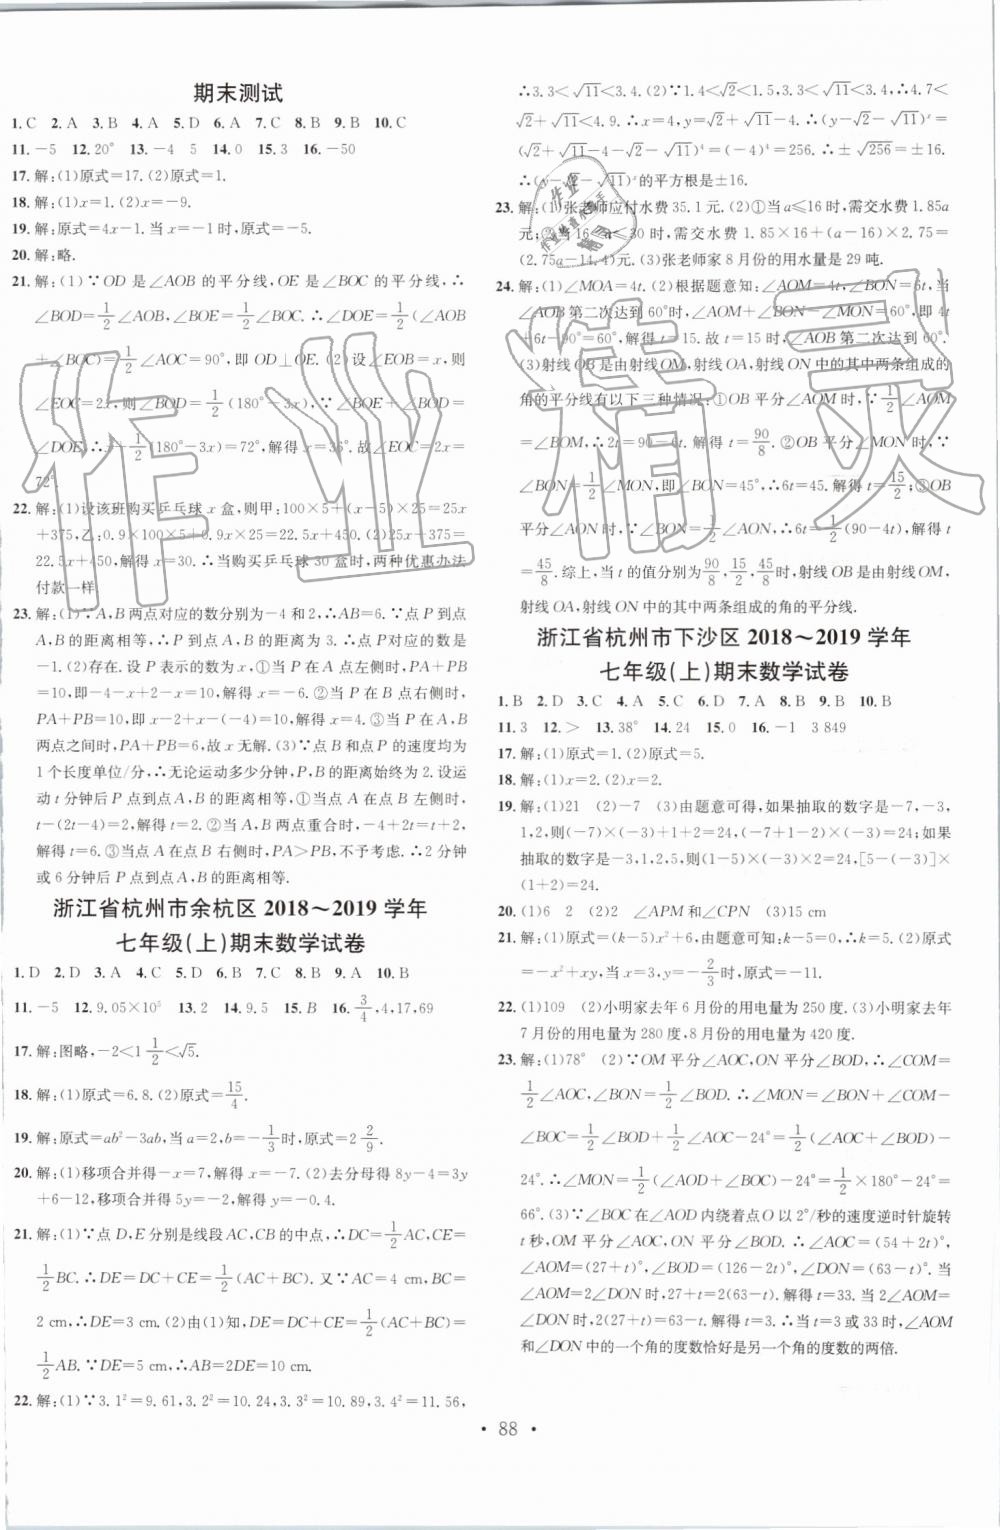 期末测试
1.C 2.A 3.B 4.A 5.D 6.A 7.C 8.B 9.B 10.C
11.-5 12.20° 13.-4 5 14.0 15.3 16.-50
17.解:(1)原式=17.(2)原式=1.
18.解:(1)x=1.(2)x=-9.
19.解:原式=4x-1.当x=1时,原式=3.
20.解:略.
21.解:(1)∵OD是∠AOB的平分线,OE是∠BOC的平分线,∴
∠BOD=1/2∠AOB,∠BOE=1/2∠BOC.∴∠DOE=1/2(∠AOB
+∠BOC)=1/2∠AOC=90°,即OD⊥OE.(2)设∠EOB=x,则
∠EOC=2x,则∠BOD=1/2(180°-3x),∵∠BOE+∠BOD=
∠DOE,∴x+1/2(180°-3x)=72°,解得x=36°.故∠EOC=2x=
72°.
22.解:(1)设该班购买乒乓球x盒,则甲:100×5+(x-5)×25=25x
+375,乙:0.9×100×5+0.9x×25=22.5x+450.(2)25x+375=
22.5x+450,解得x=30.∴当购买乒乓球30盒时,两种优惠办法
付款一样.
23.解:(1)∵A,B两点对应的数分别为-4和2,∴AB=6.∵点P到点
A,B的距离相等,∴P到点A,B的距离为3.∴点P对应的数是
-1.(2)存在.设P表示的数为x,①当P在A点左侧时,PA+PB
=10,即-4-x+2-x=10,解得x=-6.②当P在B点右侧时,
PA+PB=10,即x-2+x-(-4)=10,解得x=4.③当点P在A,B
两点之间时,PA+PB=6,故x无解.(3)∵点B和点P的速度均为
1个长度单位/分,∴无论运动多少分钟,PB的距离始终为2.设运
动t分钟后P点到点A,B的距离相等,①当点A在点P左侧时,
t-(2t-4)=2,解得t=2.②当A,B两点重合时,-4+2t=t+2,
解得t=6.③当点A在点B右侧时,PA>PB,不予考虑.∴2分钟
或6分钟后P点到点A,B的距离相等.
浙江省杭州市余杭区2018~2019学年
七年级(上)期末数学试卷
1.D 2.D 3.A 4.C 5.D 6.B 7.C 8.B 9.A 10.B
11.-5 12.9.05×10⁵ 13.2 14.9.5 15.B 16.3/4,4,17,69
17.解:图略,-2<1 1/2<√5.
18.解:(1)原式=6.8.(2)原式=15/4.
19.解:原式=ab²-3ab,当a=2,b=-1/3时,原式=2 2/9.
20.解:(1)移项合并得-x=7,解得x=-7.(2)去分母得8y-4=3y
+6-12,移项合并得5y=-2,解得y=-0.4.
21.解:(1)∵点D,E分别是线段AC,CB的中点,∴DC=1/2AC,CE=
1/2BC.∴DE=DC+CE=1/2(AC+BC).又∵AC=4 cm,BC=
2 cm,∴DE=3 cm.(2)由(1)知,DE=DC+CE=1/2(AC+BC)=
1/2AB.∵DE=5 cm,∴AB=2DE=10 cm.
22.解:(1)∵3.1²=9.61,3.2²=10.24,3.3²=10.89,3.4²=11.56,
∴3.3<√11<3.4.(2)∵1.4<√2<1.5,3.3<√11<3.4,∴4.7<
√2+√11<4.9.∴x=4,y=√2+√11-4.∴(y-√2-√11)ˣ=
(√2+√11-4-√2-√11)⁴=(-4)⁴=256.∴±√256=±16.
∴(y-√2-√11)ˣ的平方根是±16.
23.解:(1)张老师应付水费35.1元.(2)①当a≤16时,需交水费1.85a
元;②当16≤a≤30时,需交水费1.85×16+(a-16)×2.75=
(2.75a-14.4)元.(3)张老师家8月份的用水量是29吨.
24.解:(1)∠MOA=4t.(2)根据题意知:∠AOM=4t,∠BON=6t,当
∠AOB第二次达到60°时,∠AOM+∠BON-∠MON=60°,即4t
+6t-90°=60°,解得t=15.故t=15时,∠AOB第二次达到60°.
(3)射线OB是由射线OM,射线OA,射线ON中的其中两条组成的
角的平分线有以下三种情况:①OB平分∠AOM时,∵1/2∠AOM
=∠BOM,∴2t=90-6t.解得t=90/8.②OB平分∠MON时,∵
∠BON=1/2∠MON,∴∠BON=45°,∴6t=45.解得t=15/2;③OB
平分∠AON时,∵∠BON=1/2∠AON,∴6t=1/2(90-4t),解得t=
45/8.综上,当t的值分别为90/8,15/2,45/8时,射线OB是由射线OM,
射线OA,射线ON中的其中两条组成的角的平分线.
浙江省杭州市下沙区2018~2019学年
七年级(上)期末数学试卷
1.B 2.D 3.C 4.C 5.C 6.D 7.A 8.B 9.B 10.B
11.3 12.> 13.38° 14.24 15.0 16.-1 3 849
17.解:(1)原式=1.(2)原式=5.
18.解:(1)x=2.(2)x=2.
19.解:(1)21 (2)-7 (3)由题意可得,如果抽取的数字是-7,-3,
1,2,则(-7)×(-3)+1+2=24,(-7+1-2)×(-3)=24;如果
抽取的数字是-3,1,2,5,则(5-1)×(-3)×(-2)=24,[5-(-3)]×
(1+2)=24.
20.(1)6 2 (2)∠APM和∠CPN (3)15 cm
21.解:(1)原式=(k-5)x²+6,由题意可知:k-5=0,∴k=5.(2)原式
=-x²+xy-12,当x=-3,y=-2/3时,原式=-11.
22.(1)109 (2)小明家去年6月份的用电量为250度.(3)小明家去年
7月份的用电量为280度,8月份的用电量为420度.
23.解:(1)78° (2)∵OM平分∠AOC,ON平分∠BOD,∴∠COM=
1/2∠AOC,∠BON=1/2∠BOD.∴∠MON=∠BON+∠COM-
∠BOC=1/2∠BOD+1/2∠AOC-24°=1/2(∠AOC+∠BOD)-
24°.∴∠MON=1/2(∠AOD+∠BOC)-24°=1/2×180°-24°=
66°.(3)∵∠BOC在∠AOD内绕着点O以2°/秒的速度逆时针旋转
t秒,OM平分∠AOC,ON平分∠BOD.∴∠AOC=(54+2t)°,
∠AOM=(27+t)°,∠BOD=(126-2t)°,∠DON=(63-t)°.当
∠AOM=2∠DON时,27+t=2(63-t).解得t=33.当2∠AOM=
∠DON时,2(27+t)=63-t.解得t=3.∴当t=3或33时,∠AOM
和∠DON中的一个角的度数恰好是另一个角的度数的两倍.
• 88 •
作业精灵